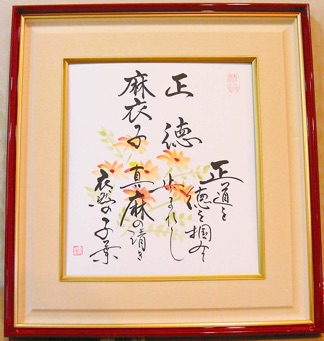 正徳
麻衣子
正道を
徳を掴み
歩まれし
真麻の清き
衣の子業